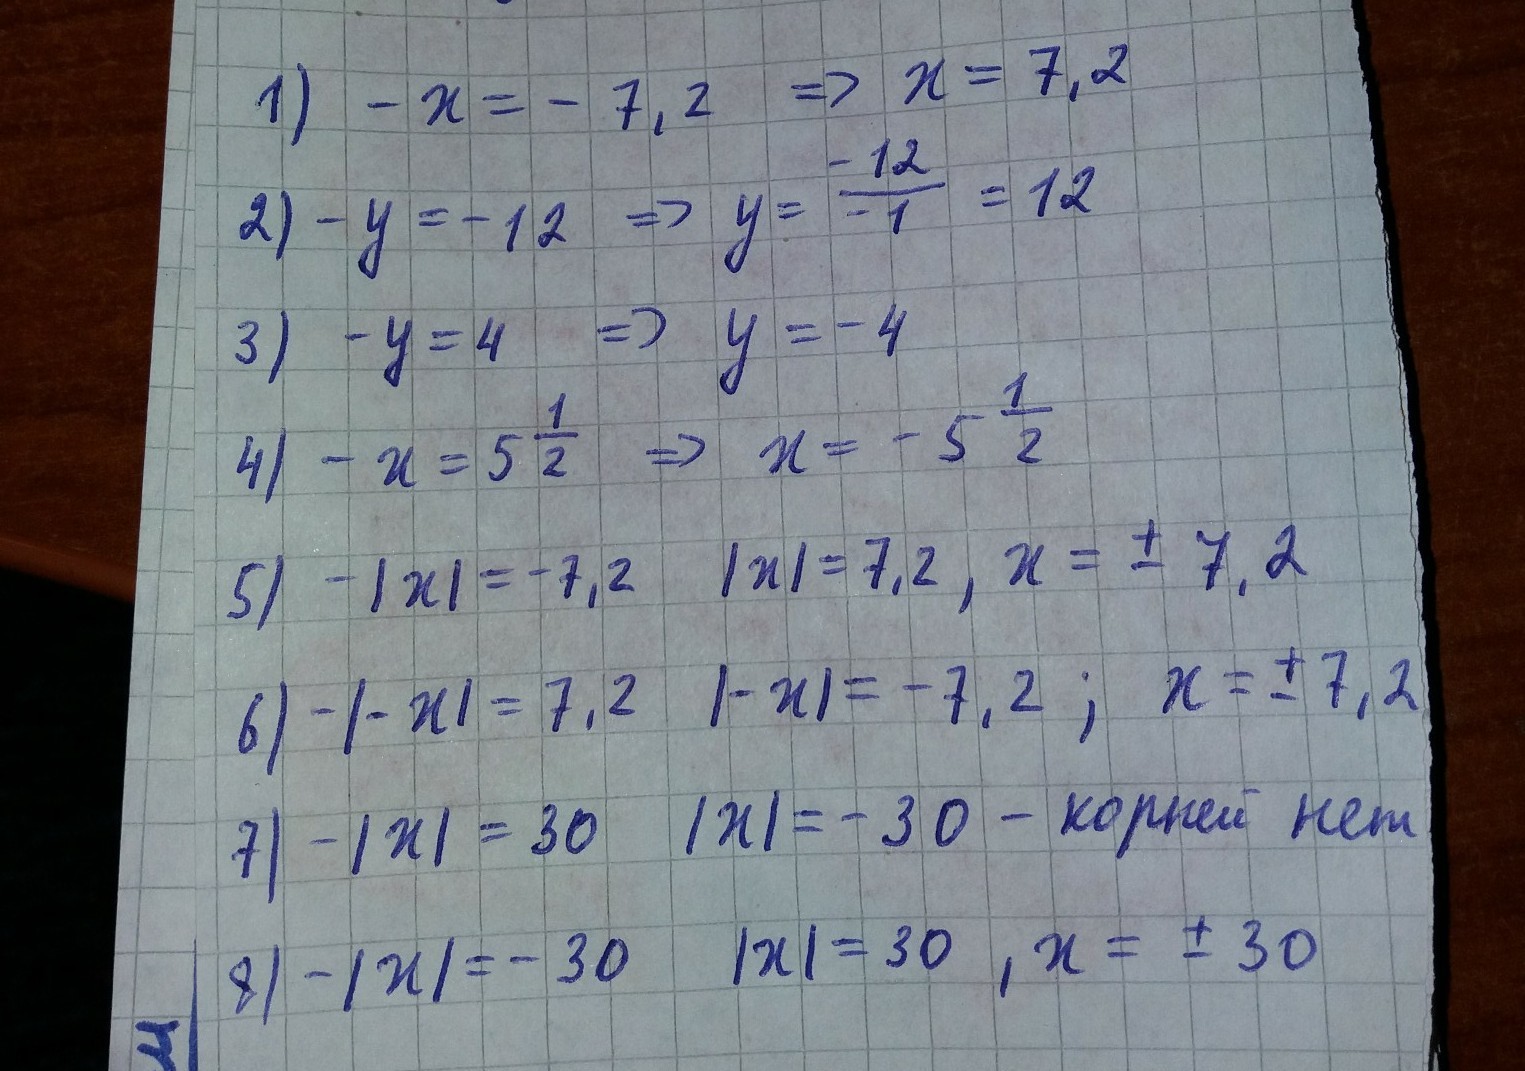 1) - x = - 7,2 => x = 7,2
2) - y = -12 => y = -12/-1 = 12
3) - y = 4 => y = - 4
4) - x = 5 1/2 => x = - 5 1/2
5) -|x| = -7,2 |x| = 7,2, x = ± 7,2
6) -|-x| = 7,2 |-x| = -7,2; x = ± 7,2
7) -|x| = 30 |x| = -30 - корней нет
8) -|x| = - 30 |x| = 30, x = ± 30